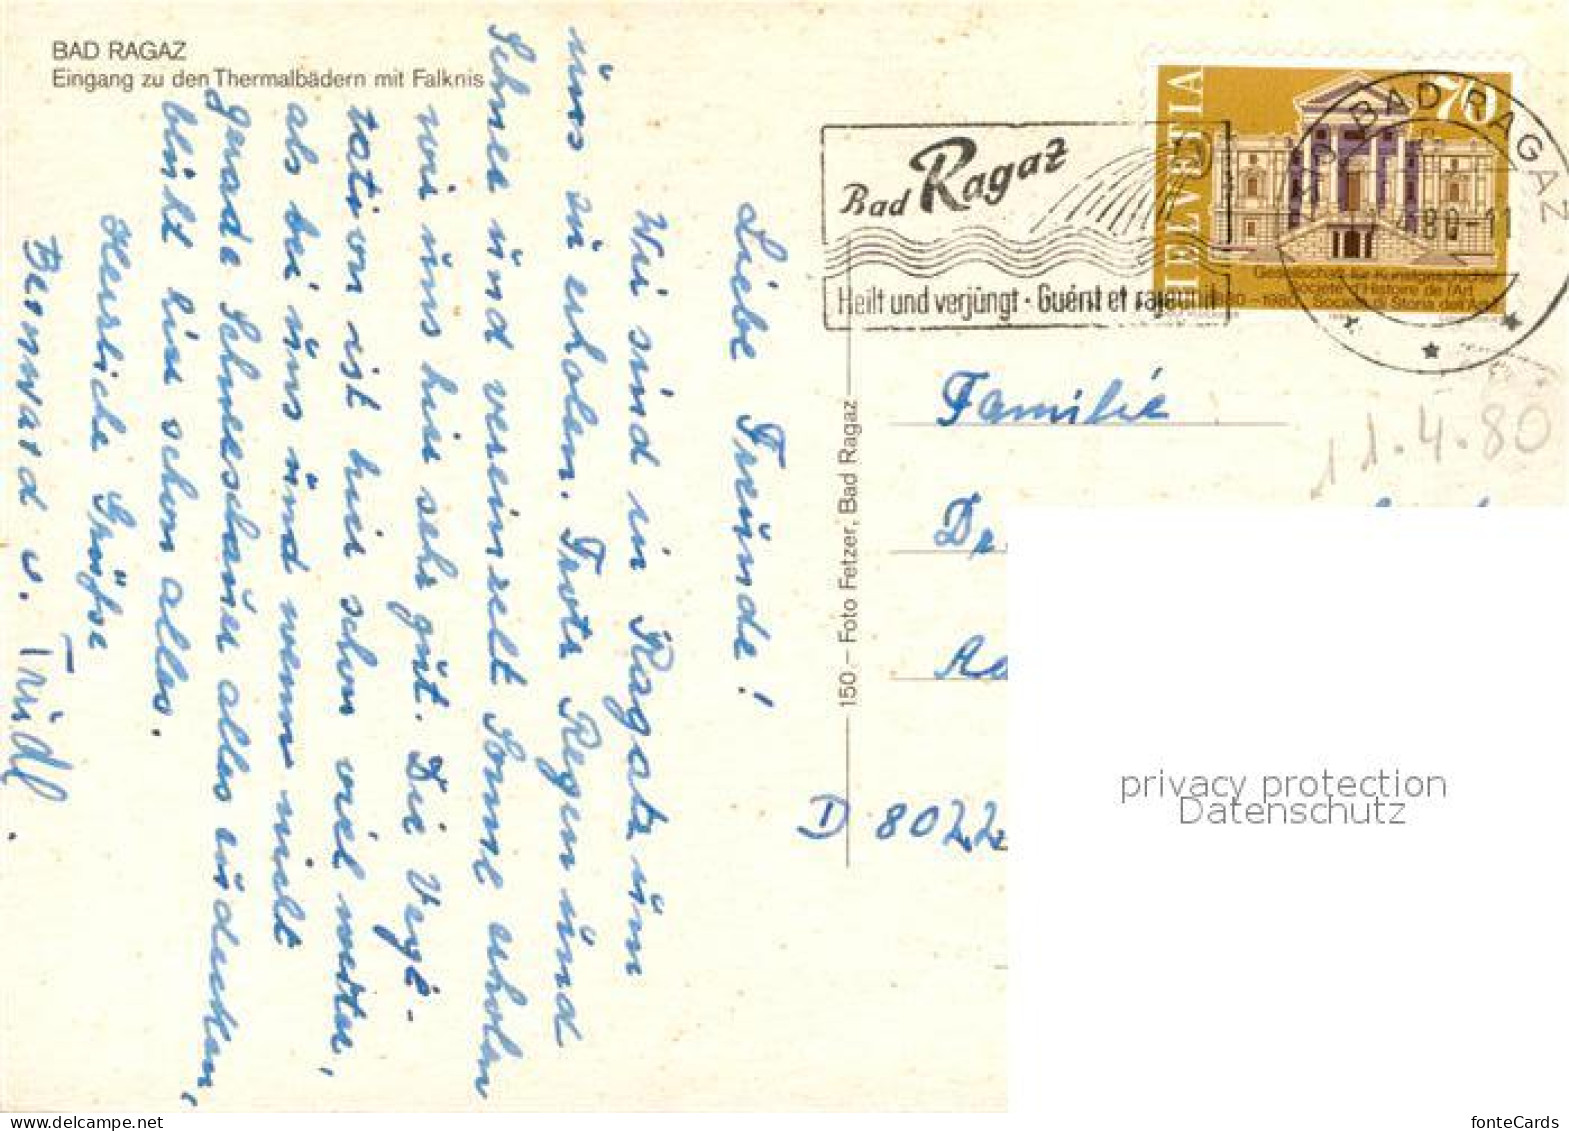 BAD RAGAZ
Eingang zu den Thermalbädern mit Falknis
Liebe Freunde!
Wir sind in Ragatz um
uns zu erholen. Trotz Regen und
Schnee und vereinzelt Sonne erholen
wir uns hier sehr gut. Die Vege-
tation ist hier schon viel weiter,
als bei uns und wenn nicht
gerade Schneeschauer alles zudecken,
blüht hier schon alles.
Herzliche Grüße
Bernward u. Trudl.
150.– Foto Fetzer, Bad Ragaz
Bad Ragaz
Heilt und verjüngt · Guérit et rajeunit
HELVETIA
70
Gesellschaft für Kunstgeschichte
Société d'Histoire de l'Art
1880–1980 Società di Storia dell'Arte
BAD RAGAZ
480-11
11.4.80
Familie
Dr.
D 8022
privacy protection
Datenschutz
www.delcampe.net
fonteCards